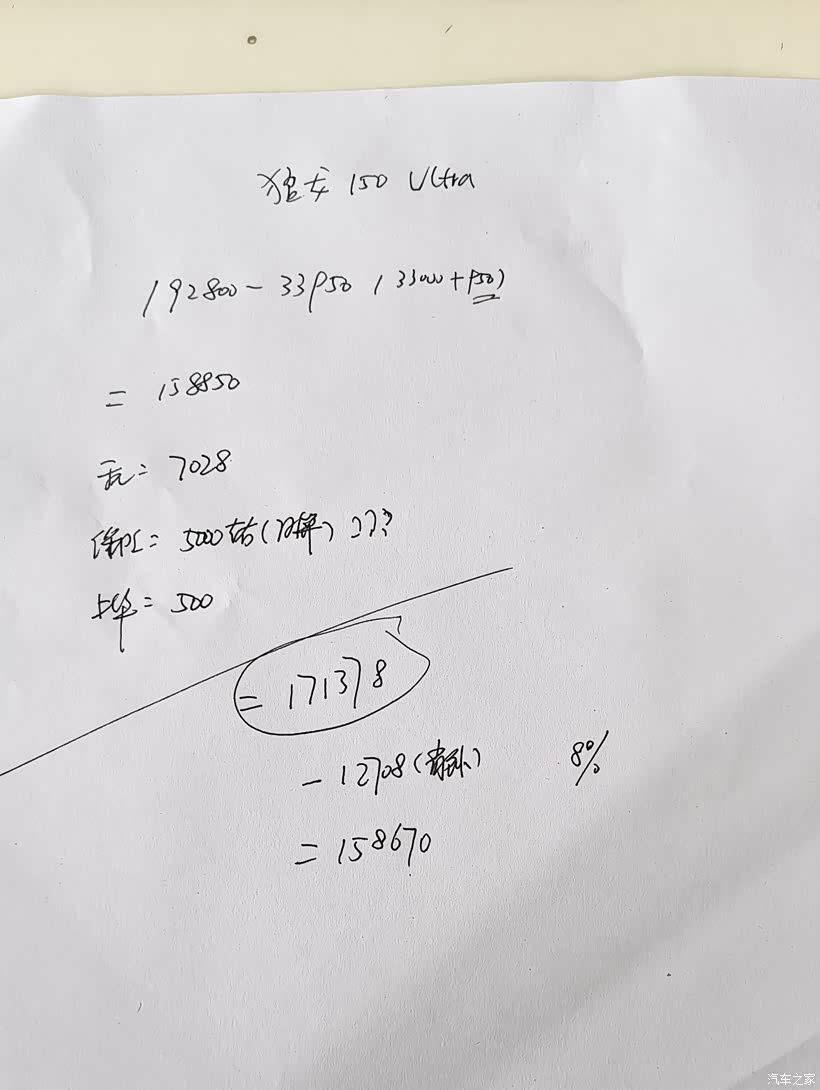 猛龙 150 Ultra
192800 - 33950 (33000+950)
= 158850
税= 7028
保险= 5000左右(
上牌= 500
= 171378
- 12708(
8%
= 158670
汽车之家